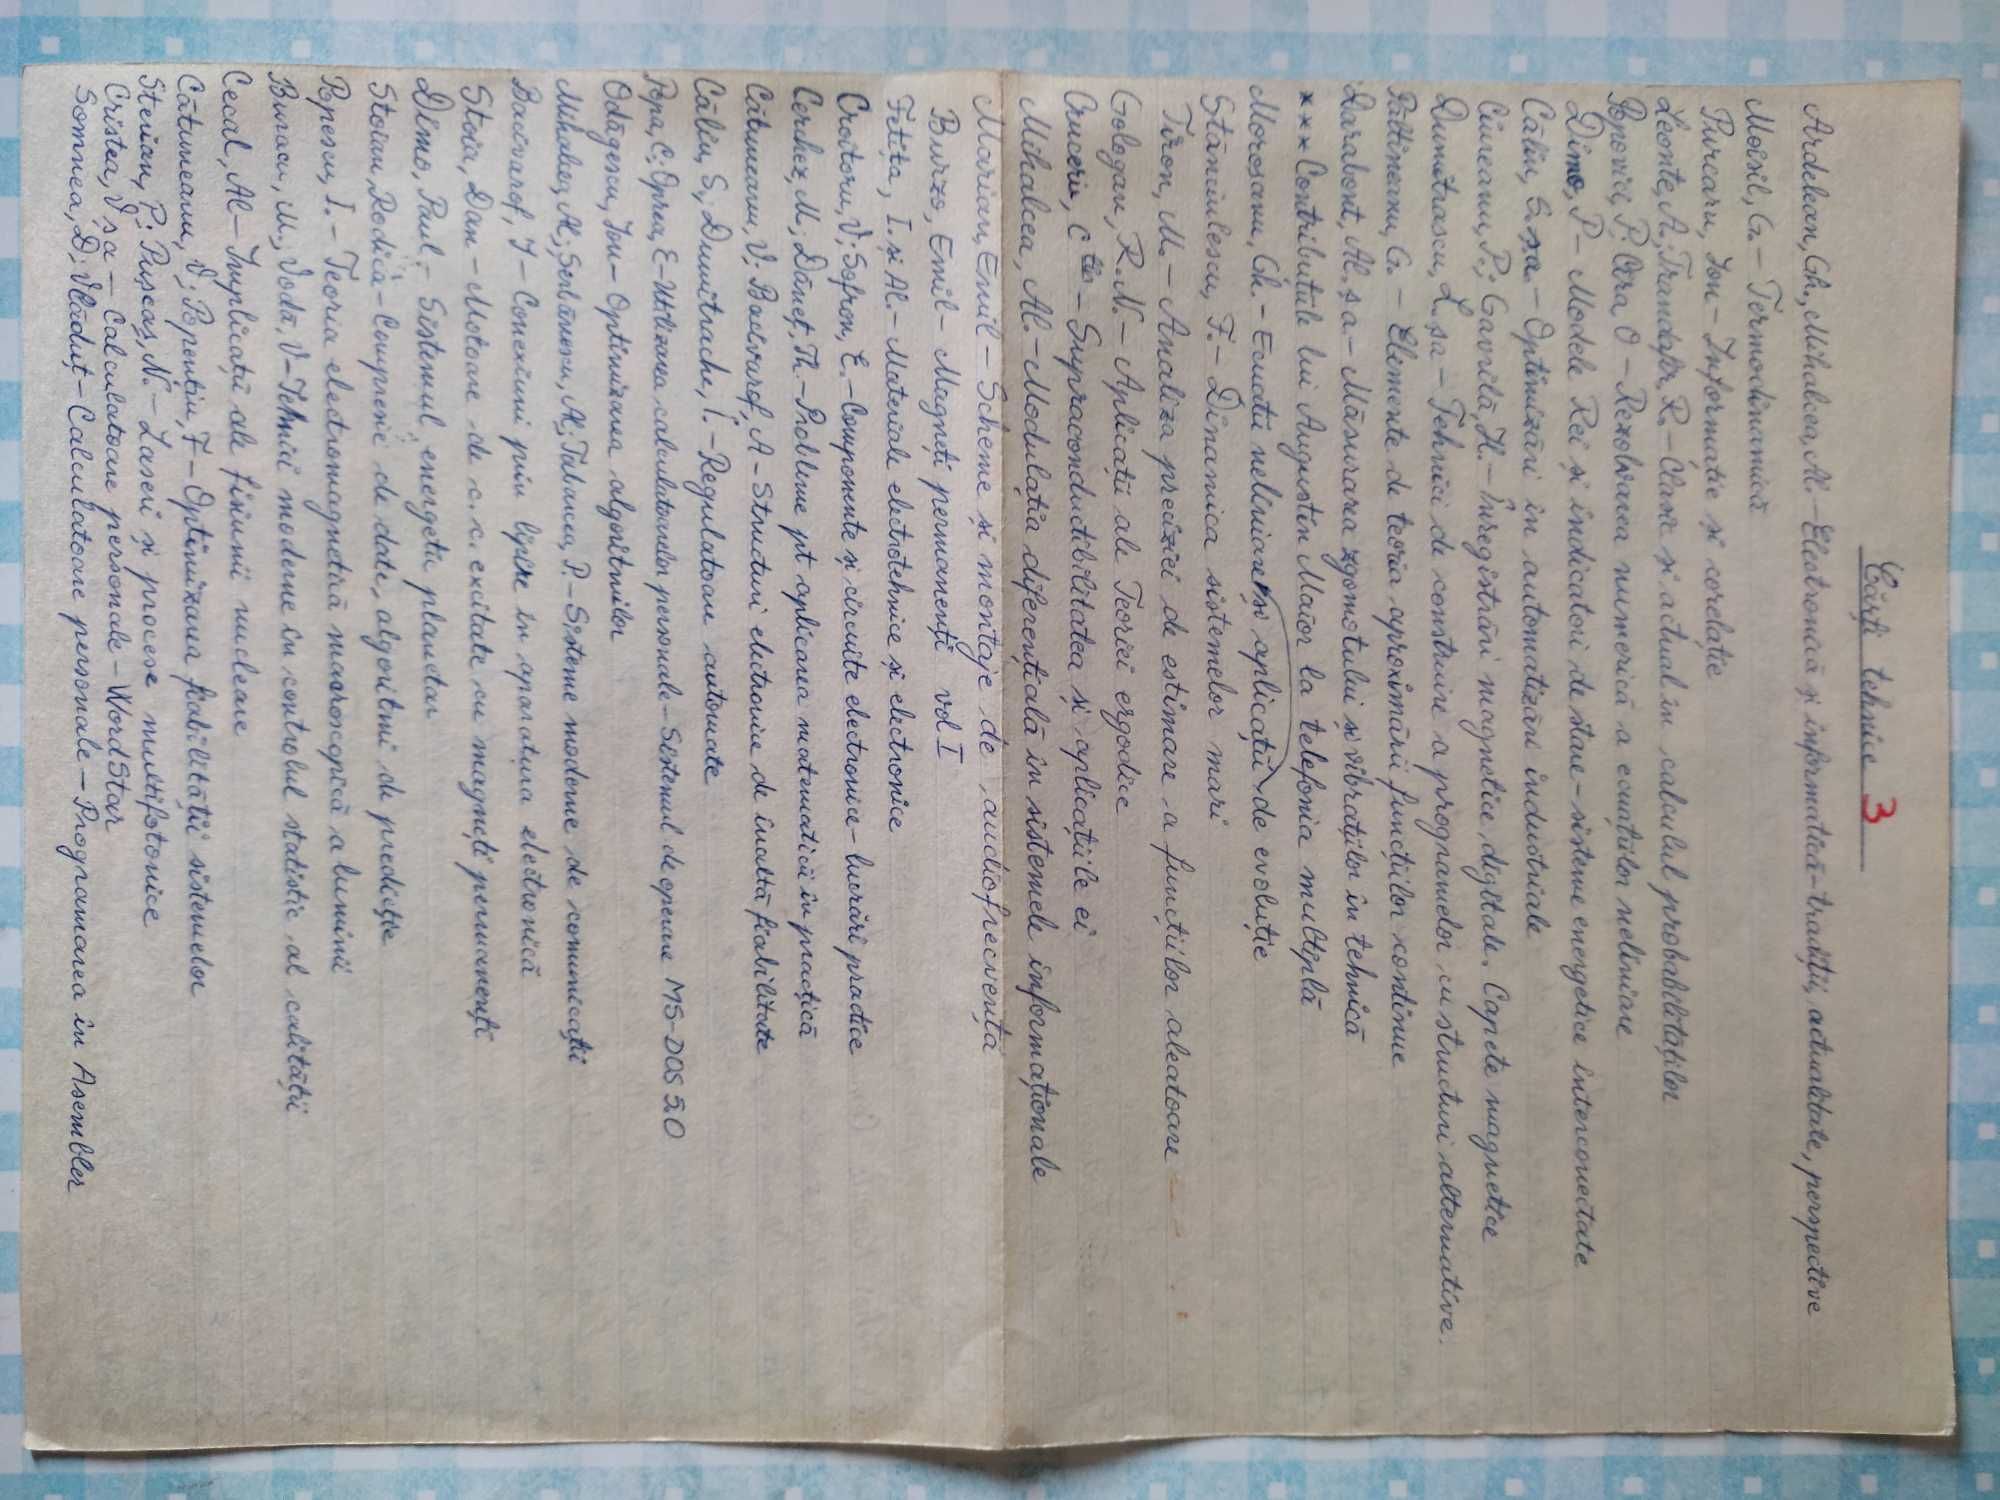 Cărți tehnice 3
Ardelean, Gh., Mihalcea, N. - Electronică și informatică - tradiții, actualitate, perspective
Moisil, G. - Termodinamică
Purcaru, Ion - Informație și corelație
Leonte, A; Trandafir, R. - Clasic și actual în calculul probabilităților
Popovici, P; Cira, O - Rezolvarea numerică a ecuațiilor neliniare
Dimo, P - Modele Rei și indicatori de stare - sisteme energetice interconectate
Călin, S. sa. - Optimizări în automatizări industriale
Ciureanu, P.; Gavrilă, H. - Înregistrări magnetice digitale. Capete magnetice
Dumitrascu, L. sa - Tehnici de construire a programelor cu structuri alternative.
Păltineanu, G. - Elemente de teoria aproximării funcțiilor continue
Darabont, Al. ș a - Măsurarea zgomotului și vibrațiilor în tehnică
*** Contribuțiile lui Augustin Maior la telefonia multiplă
Moroșanu, Gh. - Ecuații neliniare și aplicații de evoluție
Stănciulescu, F. - Dinamica sistemelor mari
Tiron, M. - Analiza preciziei de estimare a funcțiilor aleatoare
Gologan, R.N. - Aplicații ale Teoriei ergodice
Cruceru, C tin - Supraconductibilitatea și aplicațiile ei
Mihalcea, Al. - Modulația diferențială în sistemele informaționale
Marian, Emil - Scheme și montaje de audiofrecvență
Burzo, Emil - Magneți permanenți vol I
Fetița, I. și Al. - Materiale electrotehnice și electronice
Croitoru, V; Sofron, E. - Componente și circuite electronice - lucrări practice
Cerchez, M; Dăneț, Th. - Probleme pt aplicarea matematicii în practică
Cătuneanu, V; Bacivarof, A - Structuri electronice de înaltă fiabilitate
Călin, S; Dumitrache, I. - Regulatoare automate
Popa, C; Oprea, E - Utilizarea calculatoarelor personale - Sistemul de operare MS-DOS 5.0
Odăgescu, Ion - Optimizarea algoritmilor
Mihalea, A; Șerbănescu, A; Tabarcea, P - Sisteme moderne de comunicații
Bacivarof, I - Conexiuni prin lipire în aparatura electronică
Stoia, Dan - Motoare de c.c. excitate cu magneți permanenți
Dimo, Paul - Sistemul energetic planetar
Stoian, Rodica - Compresie de date, algoritmi de predicție
Popescu, I. - Teoria electromagnetică macroscopică a luminii
Buracu, M; Vodă, V - Tehnici moderne în controlul statistic al calității
Cecal, Al - Implicații ale fisiunii nucleare
Cătuneanu, V; Popențiu, F - Optimizarea fiabilității sistemelor
Sterian, P; Pușcaș, N. - Laseri și procese multifotonice
Cristea, V. ș a - Calculatoare personale - WordStar
Somnea, D; Vlăduț - Calculatoare personale - Programarea în Asembler